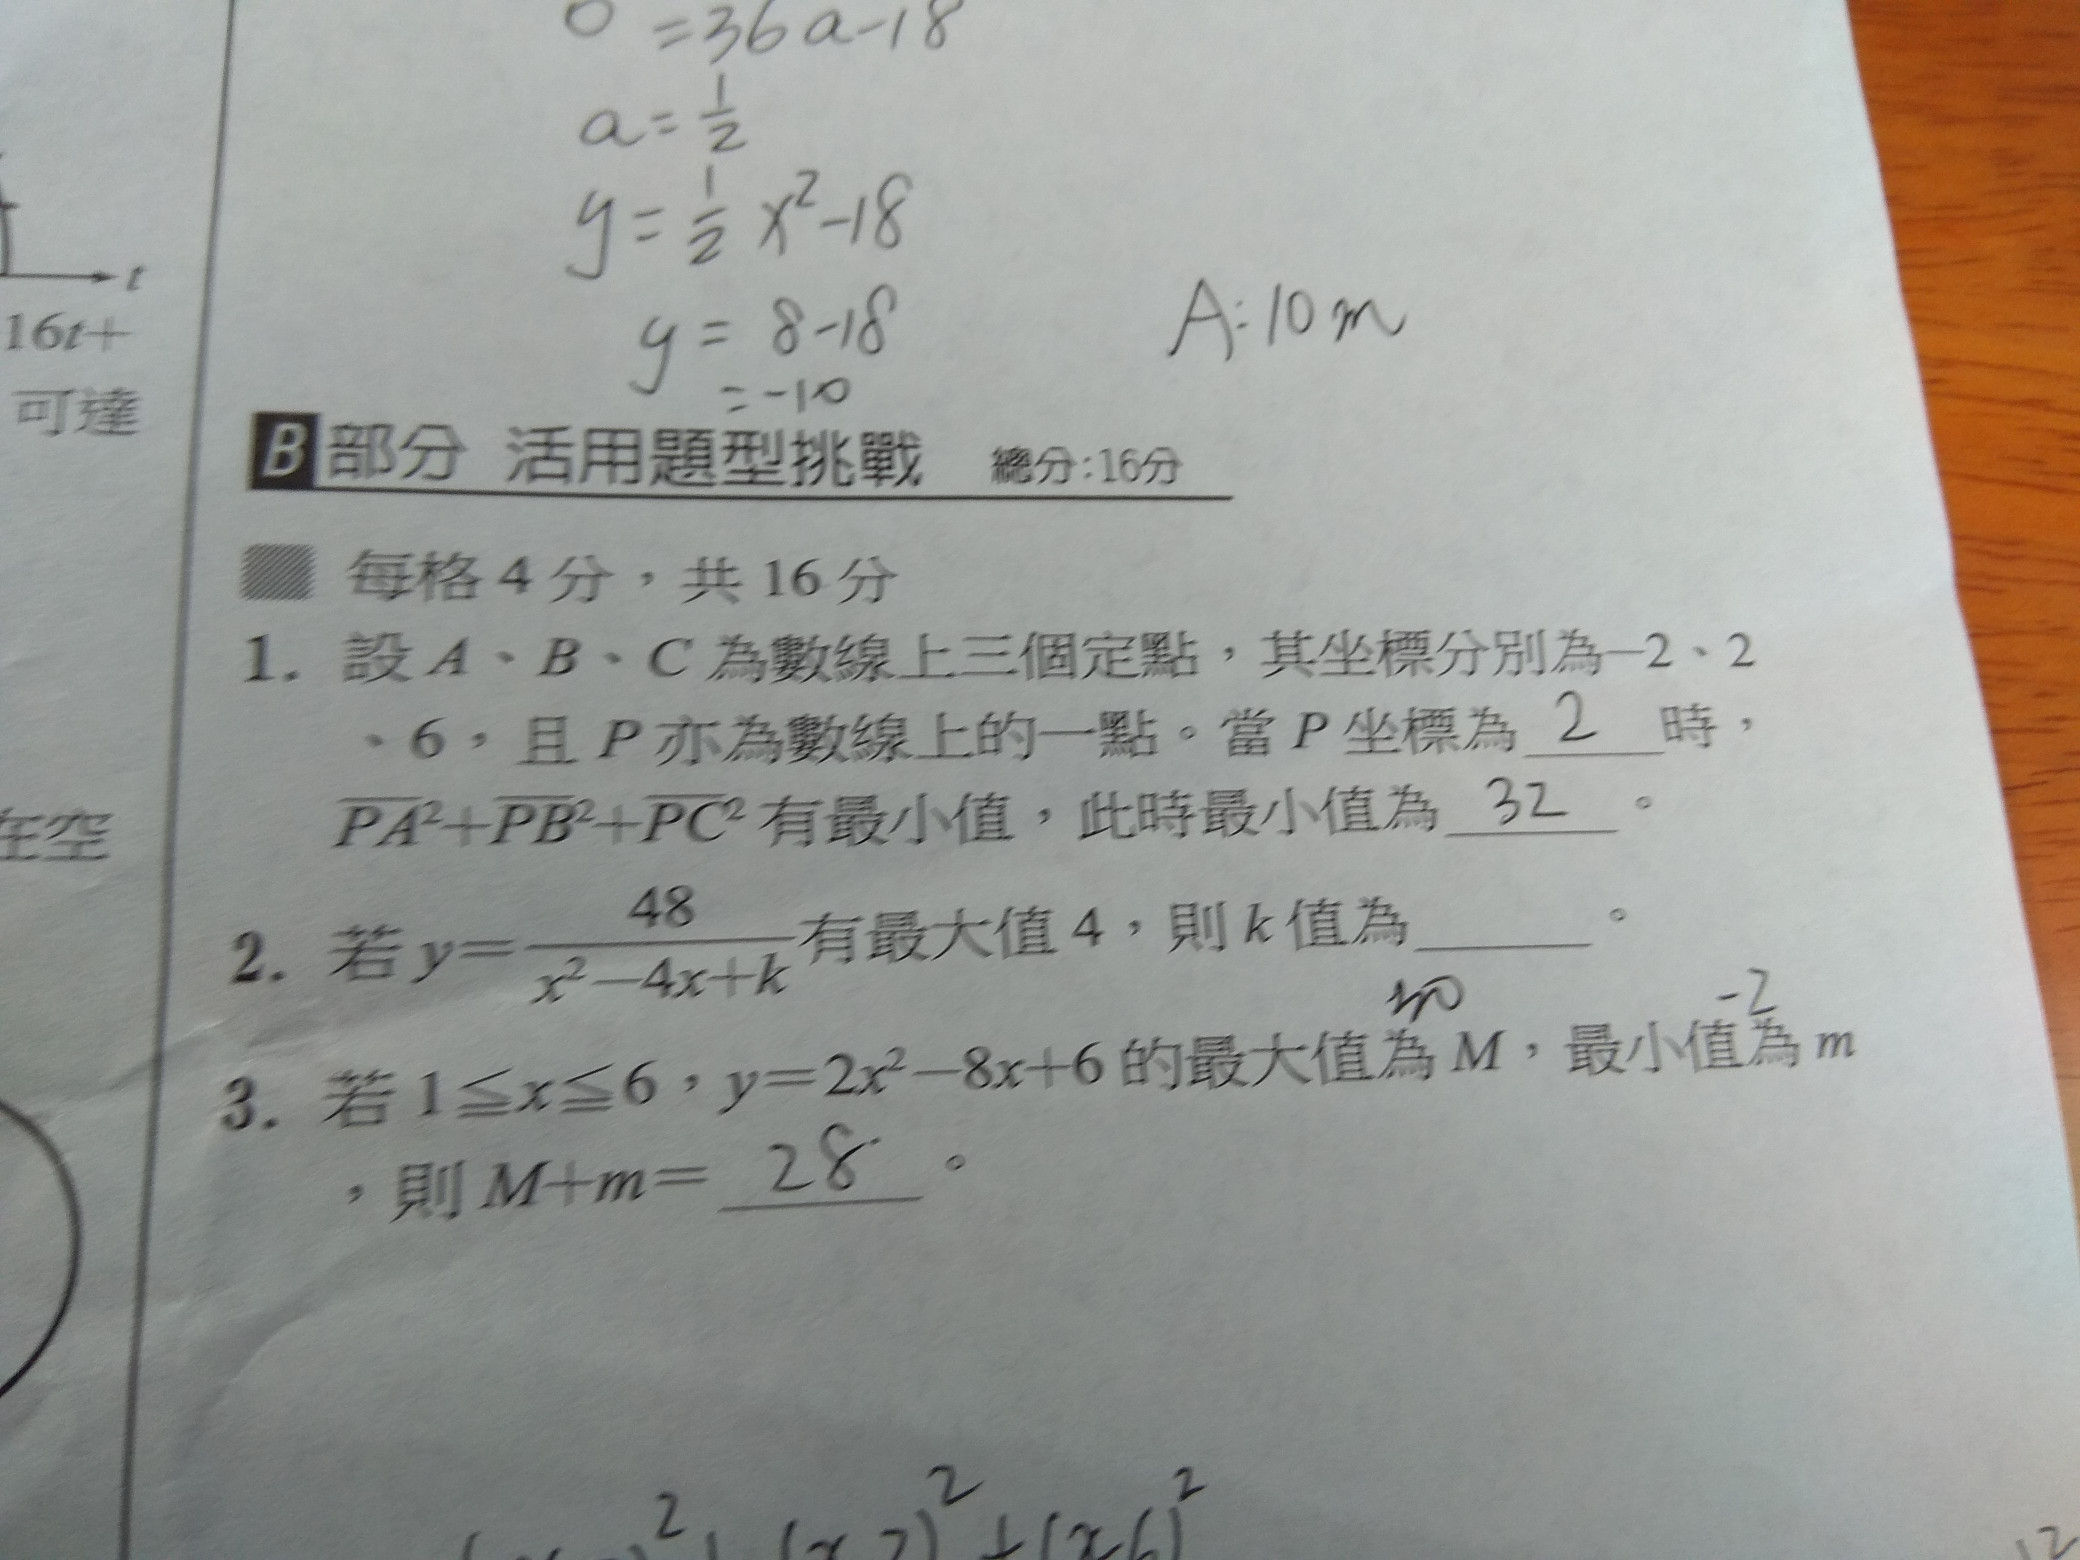 =36a-18
a=1/2
y=1/2 x²-18
y=8-18
=-10
A:10m
t
16t+
可達
在空
B部分 活用題型挑戰 總分:16分
每格4分，共16分
1. 設A、B、C為數線上三個定點，其坐標分別為−2、2
、6，且P亦為數線上的一點。當P坐標為 2 時，
PA²+PB²+PC²有最小值，此時最小值為 32 。
2. 若y=48/(x²−4x+k)有最大值4，則k值為____。
-2
3. 若1≦x≦6，y=2x²−8x+6的最大值為M，最小值為m
，則M+m= 28 。
+(x-6)²